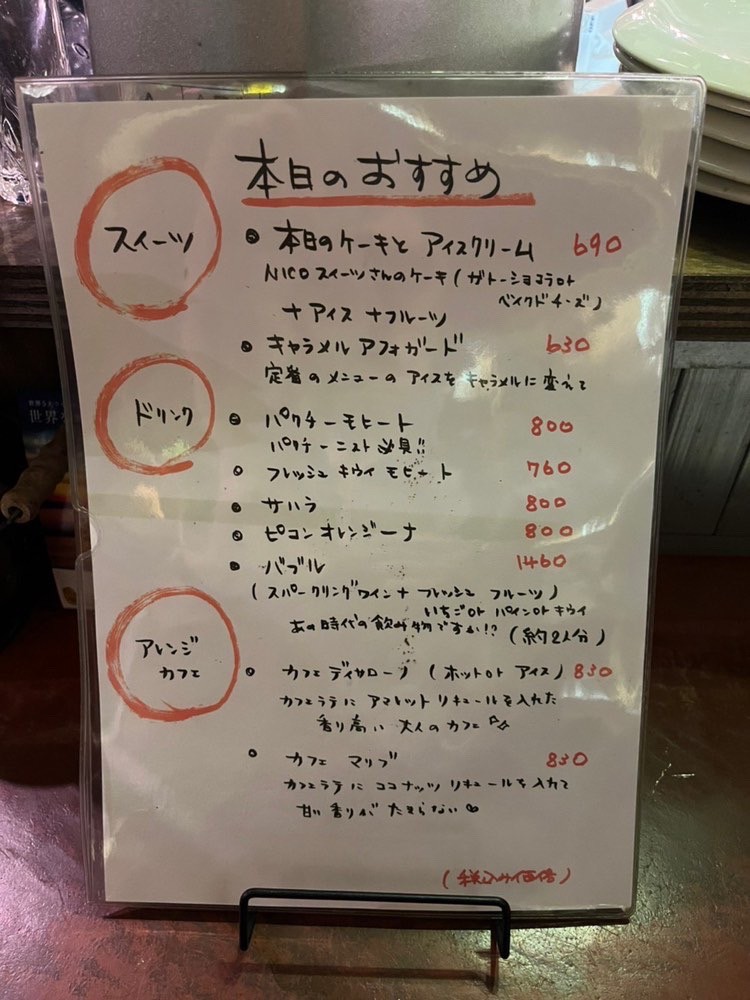 本日のおすすめ
スイーツ
• 本日のケーキと アイスクリーム 690
NICOスイーツさんのケーキ(ガトーショコラot
ベイクドチーズ)
+アイス+フルーツ
• キャラメル アフォガード 630
定番のメニューのアイスをキャラメルに変えて
ドリンク
• パクチーモヒート 800
パクチーニスト必見!!
• フレッシュキウイモヒート 760
• サハラ 800
• ピコンオレンジーナ 800
• バブル 1460
(スパークリングワイン+フレッシュ フルーツ)
いちごot パインotキウイ
あの時代の飲み物ですか!? (約2人分)
アレンジ
カフェ
• カフェ ディサローノ (ホットot アイス) 830
カフェラテに アマレット リキュールを入れた
香り高い 大人のカフェ
• カフェ マリブ 830
カフェラテに ココナッツ リキュールを入れて
甘い香りが たまらない♡
(税込み価格)
世界